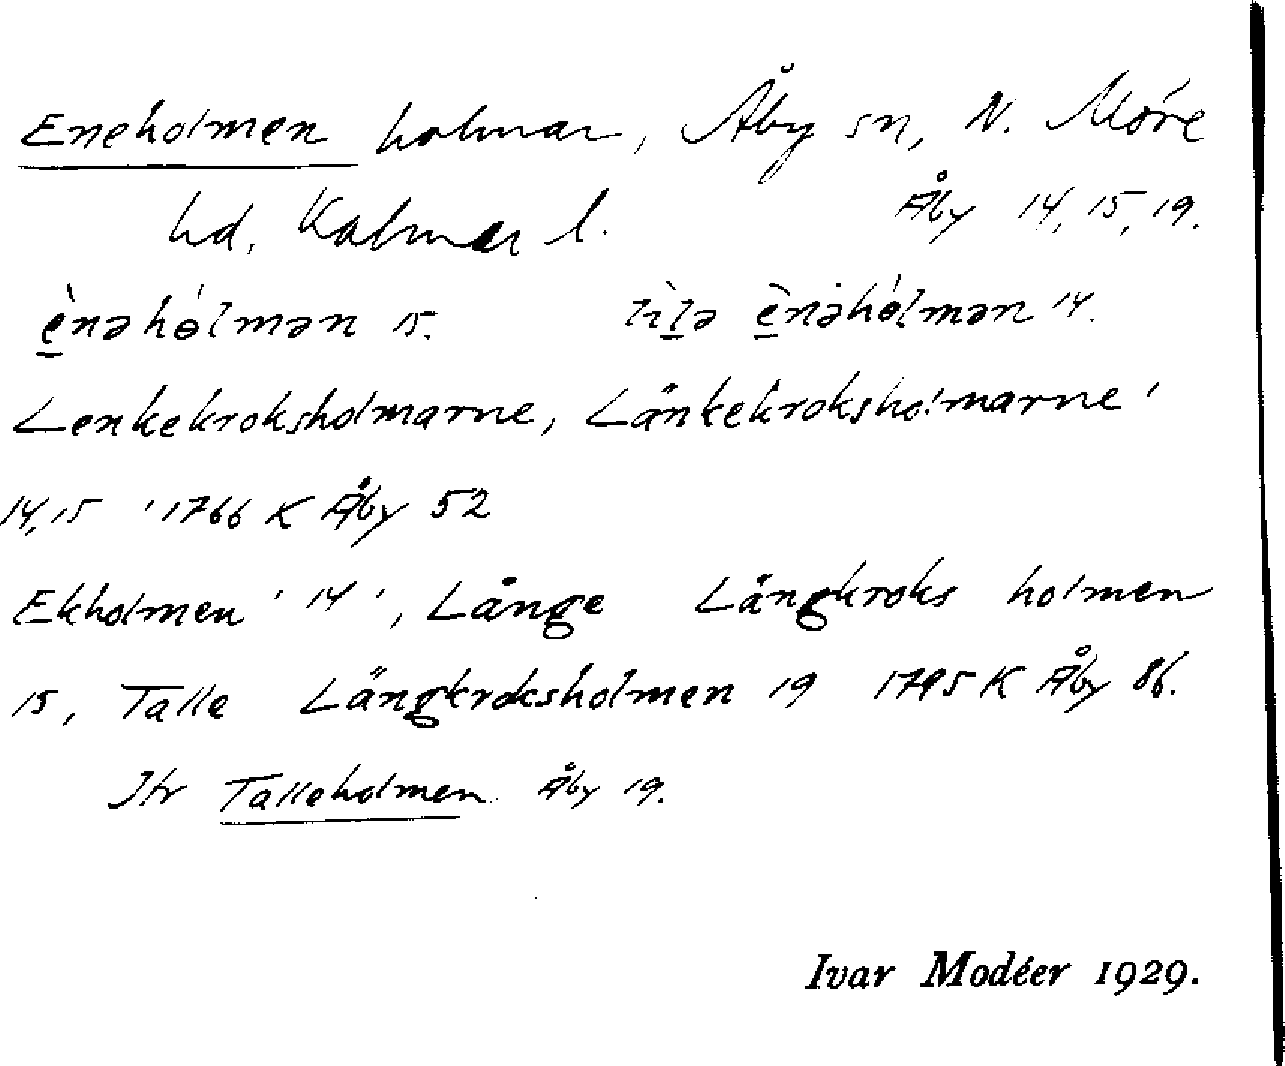 Eneholmen holmar, Åby sn, N. Möre
hd, Kalmar l. Åby 14, 15, 19.
è̱nəhólmən 15. lìḻə è̱nəhólmən 14.
Lenkekroksholmarne, Länkekroksholmarne '
14,15 ' 1766 K Åby 52
Ekholmen ' 14 ', Långe Långkroks holmen
15, Talle Långkroksholmen 19 1795 K Åby 86.
Jfr Talleholmen Åby 19.
Ivar Modéer 1929.